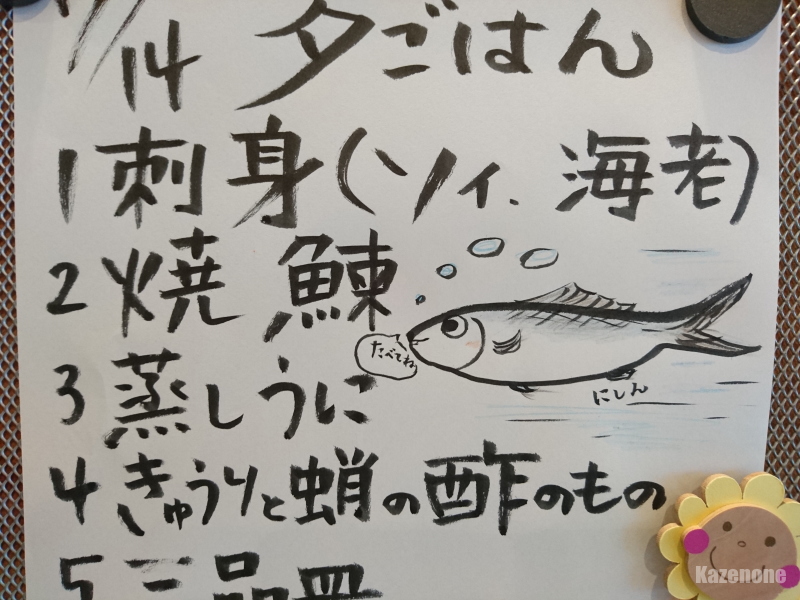 14 夕ごはん
1 刺身(ソイ、海老)
2 焼 鰊
たべてね
にしん
3 蒸しうに
4 きゅうりと蛸の酢のもの
5 三品皿
Kazenone